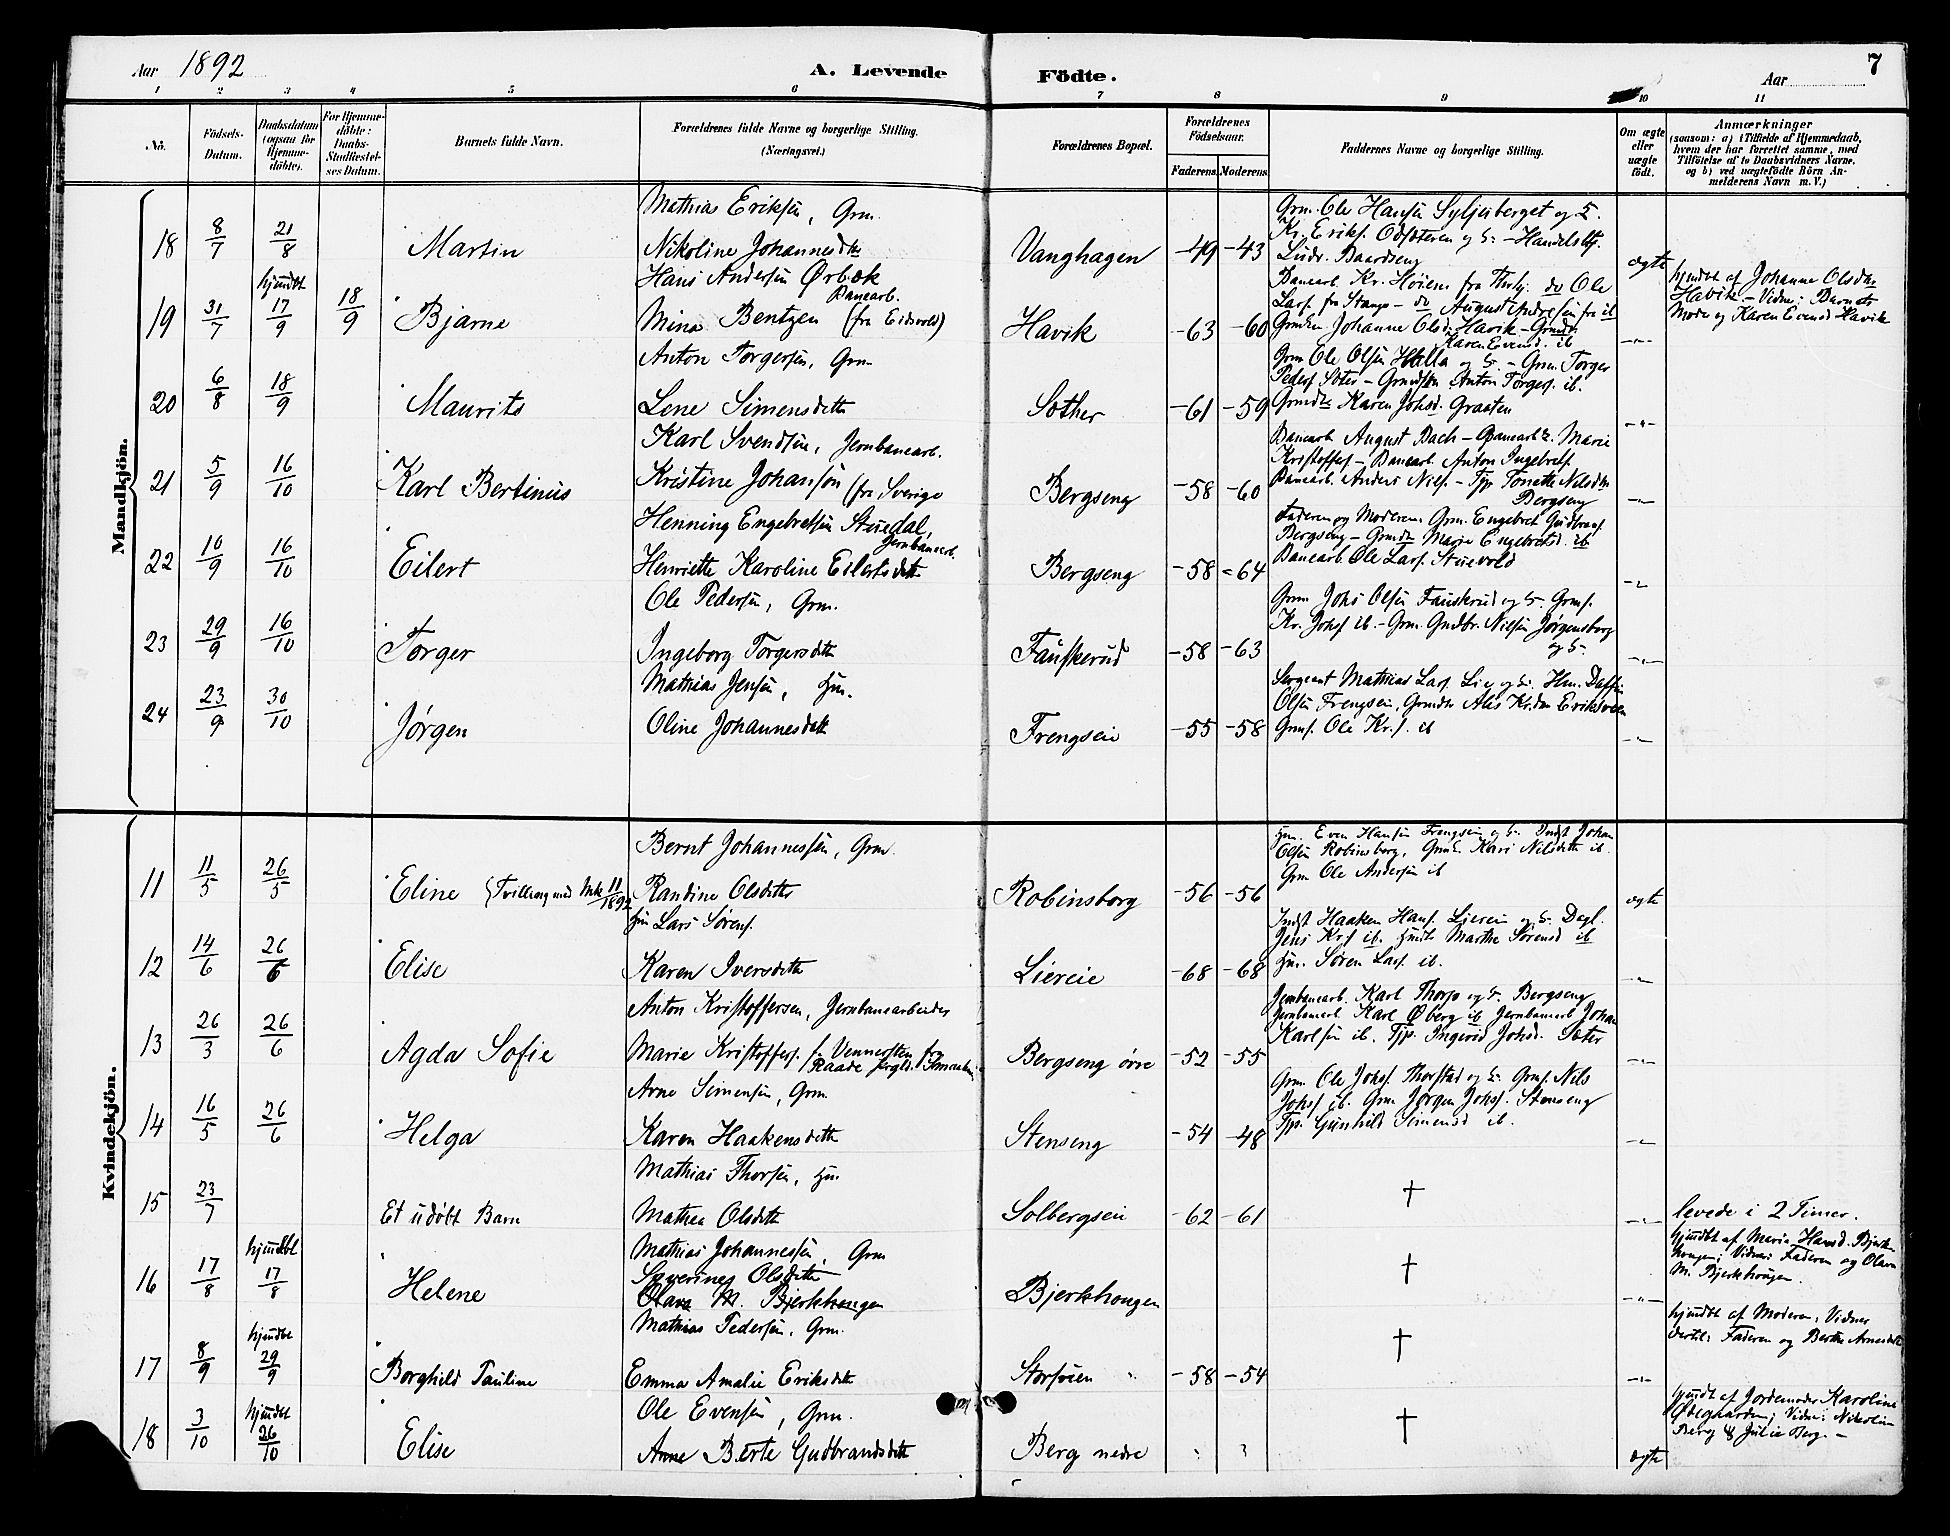 Aar 1892
A. Levende
Födte.
7
Aar
1 2 3 4 5 6 7 8 9 10 11
No.
Födsels-Datum.
Daabsdatum (ogsaa for Hjemmedöbte).
For Hjemmedöbte: Daabs-Stadfæstelses Datum.
Barnets fulde Navn.
Forældrenes fulde Navne og borgerlige Stilling. (Næringsvei.)
Forældrenes Bopæl.
Forældrenes Födselsaar.
Faderens. Moderens.
Faddernes Navne og borgerlige Stilling.
Om ægte eller uægte födt.
Anmærkninger
(saasom: a) i Tilfælde af Hjemmedaab, hvem der har forrettet samme, med Tilföielse af to Daabsvidners Navne, og b) ved uægtefödte Börn Anmelderens Navn m. V.)
Mandkjön.
18 8/7 21/8 Martin
Mathias Eriksen, Grm.
Nikoline Johannesdtr
Vanghagen -49 -43
Grm. Ole Hansen Syljuberget og
Kr. Eriks. Odsæteren og
ægte
19 31/7 hjemdbt 17/9 18/9 Bjarne
Hans Andersen Ørbæk
Banearb.
Mina Bentzen (fra Eidsvold)
Havik -63 -60
Banearb. Kr. Høiens fra
do Ole
Lars. fra Stange - do August Andresen fra ib
Johanne Olsd. Havik
Karen Evensd. ib
hjemdbt af Johanne Olsdtr
Havik - Vidner: Barnets
Mode og Karen Evensd Havik
20 6/8 18/9 Maurits
Anton Torgersen, Grm
Lene Simensdtr
Sother -61 -59
Grm Ole Olsen Holla og - Grm. Torger
Peders. Soter - Anton Torgers. ib.
Karen Johsd. Graaten
21 5/9 16/10 Karl Bertinius
Karl Svendsen, Jernbanearb.
Kristine Johanson (fra Sverige
Bergseng -58 -60
Banearb August Bach - Banearb. Marie
Kristoffers - Banearb. Anton Ingebrets.
Banearb. Anders Nils. - Tjp Tonette Nilsdtr
Bergseng
22 10/9 16/10 Eilert
Henning Engebretsen Stuedal,
Jernbanearb.
Henriette Karoline Eilertsdtr
Bergseng -58 -64
Faderen og Moderen. Grm. Engebret Gudbrans.
Bergseng - Marie Engebretsd. ib
Banearb. Ole Lars. Stuevold
23 29/9 16/10 Torger
Ole Pedersen, Grm.
Ingeborg Torgersdtr
Fauskerud -58 -63
Grm Johs Olsen Fauskerud og Grms.
Kr. Johs ib. - Grm. Gudbr. Nilsen Jørgensborg
24 23/9 30/10 Jørgen
Mathias Jensen, Hm.
Oline Johannesdtr
Frengseie -55 -58
Sergeant Mathias Lars. Lie og Hm.
Olsen Frengseie,
Grms. Ole Kr.s. ib
Kvindekjön.
11 11/5 26/5 Eline (Tvilling med Mk 11/1892
Bernt Johannessen, Grm.
Randine Olsdtr
Robinsborg -56 -56
Hm. Even Hansen Frengseie og Indst Johan
Olsen Robinsborg, Kari Nilsdtr ib.
Grm Ole Andersen ib
ægte
12 14/6 26/6 Elise
Hm Lars Sørens.
Karen Iversdtr
Liereie -68 -68
Indst Haaken Hans. Liereie og
Jens Krs ib. Marthe Sørensd ib
Hm. Søren Lars. ib.
13 26/3 26/6 Agda Sofie
Anton Kristoffersen, Jernbanearbeider
Marie Kristoffers.
Bergseng øvre -52 -55
Jernbanearb. Karl og Bergseng
Jernbanearb Karl Øberg ib Jernbanearb Johan
Karlsen ib. Tjp. Ingerid Johsd. Soter
14 16/5 26/6 Helga
Arne Simensen, Grm.
Karen Haakensdtr
Stenseng -54 -48
Grm. Ole Johs. Thorstad og Grms. Nils
Johs ib. Grm Jørgen Johs. Stenseng
Tjp. Gunhild Simensd ib.
15 23/7 Et udøbt Barn
Mathias Thorsen, Hm
Mathea Olsdtr
Solbergseie -62 -61
†
levede i 2 Timer.
16 17/8 hjemdbt 17/8 Helene
Mathias Johannessen, Grm
Severine Olsdtr
Olava M. Bjerkhougen
Bjerkhougen
†
hjemdbt af Marie Hansd. Bjerkhougen; Vidner: Faderen og Olava
M. Bjerkhougen.
17 8/9 hjemdbt 29/9 Borghild Pauline
Mathias Pedersen, Grm.
Emma Amalie Eriksdtr
Storsveen -58 -54
†
hjemdbt af Moderen; Vidner
dertil: Faderen og Berthe Arnesdtr
18 3/10 hjemdbt 26/10 Elise
Ole Evensen, Grm.
Anne Berte Gudbrandsdtr
Berg nedre
†
ægte
hjemdbt af Jordemoder Karoline
Ødegaarden; Vidner: Nikoline
Berg & Julie Berg. -